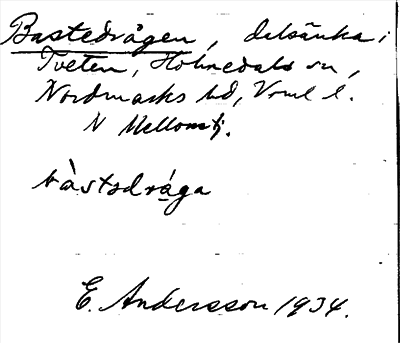 Bastedrågen, dalsänka i
Tveten, Holmedals sn,
Nordmarks hd, Vrml l.
N Mellomtj.
bàstədrága
E. Andersson 1934.